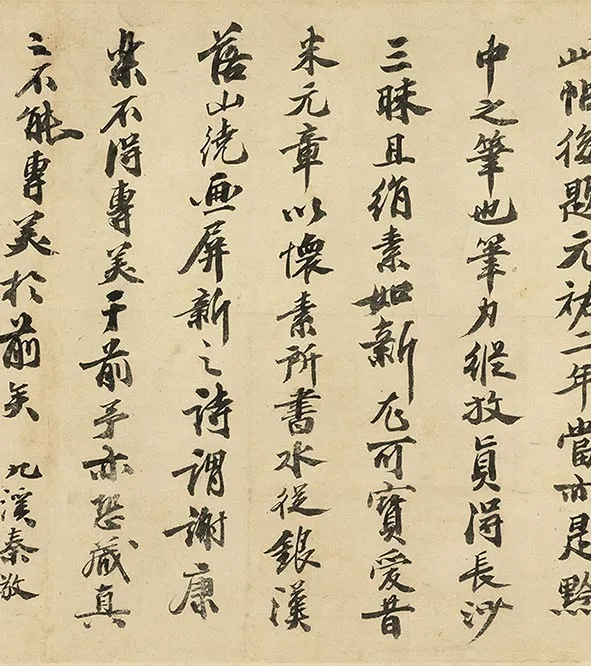 此帖後題元祐二年當亦是黔
中之筆也筆力縱放真得長沙
三昧且絹素如新尤可寶愛昔
米元章以懷素所書水從銀漢
落山繞画屏新之詩謂謝康
樂不得專美于前予亦恐藏真
之不能專美於前矣 溪秦敬